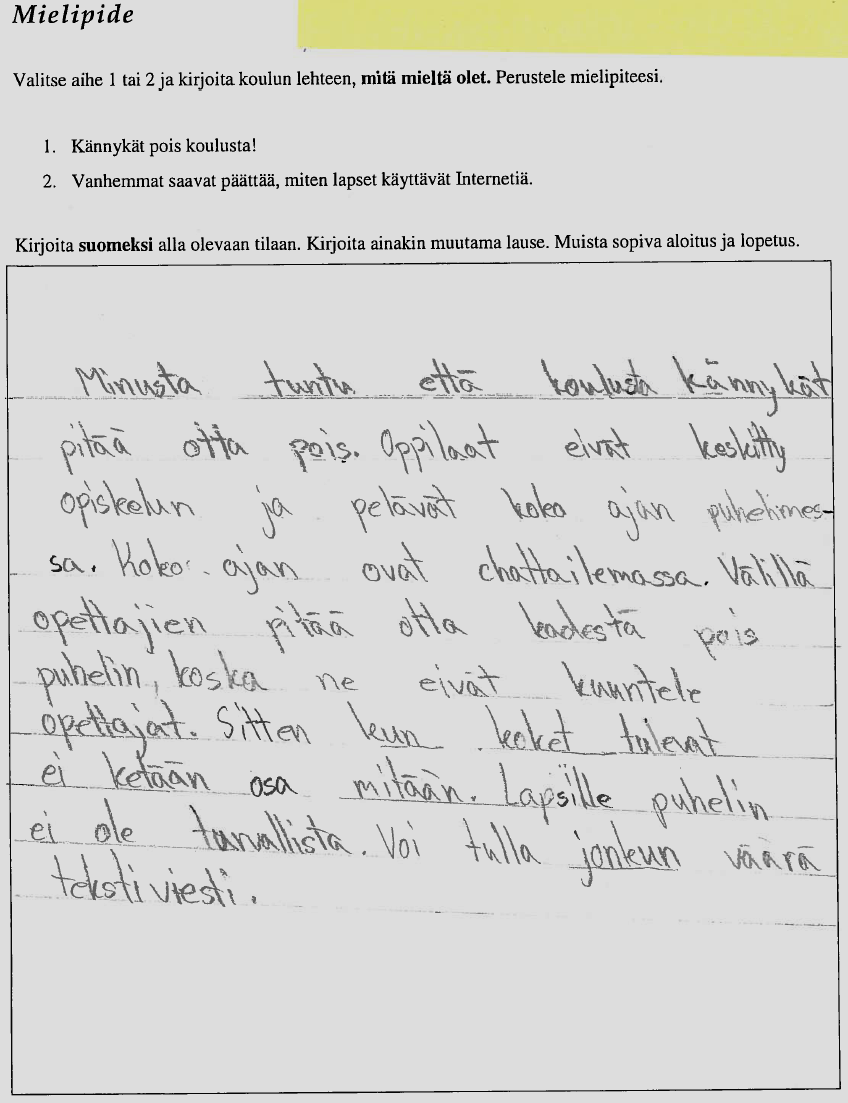 Mielipide
Valitse aihe 1 tai 2 ja kirjoita koulun lehteen, mitä mieltä olet. Perustele mielipiteesi.
1. Kännykät pois koulusta!
2. Vanhemmat saavat päättää, miten lapset käyttävät Internetiä.
Kirjoita suomeksi alla olevaan tilaan. Kirjoita ainakin muutama lause. Muista sopiva aloitus ja lopetus.
Minusta tuntu että koulusta kännykät
pitää otta pois. Oppilaat eivät keskitty
opiskelun ja pelävät koko ajan puhelimes-
sa. Koko ajan ovat chattailemassa. Välillä
opettajien pitää otta kadestä pois
puhelin, koska ne eivät kuuntele
opettajat. Sitten kun koket tulevat
ei ketään osa mitään. Lapsille puhelin
ei ole turvallista. Voi tulla jonkun väärä
tekstiviesti.